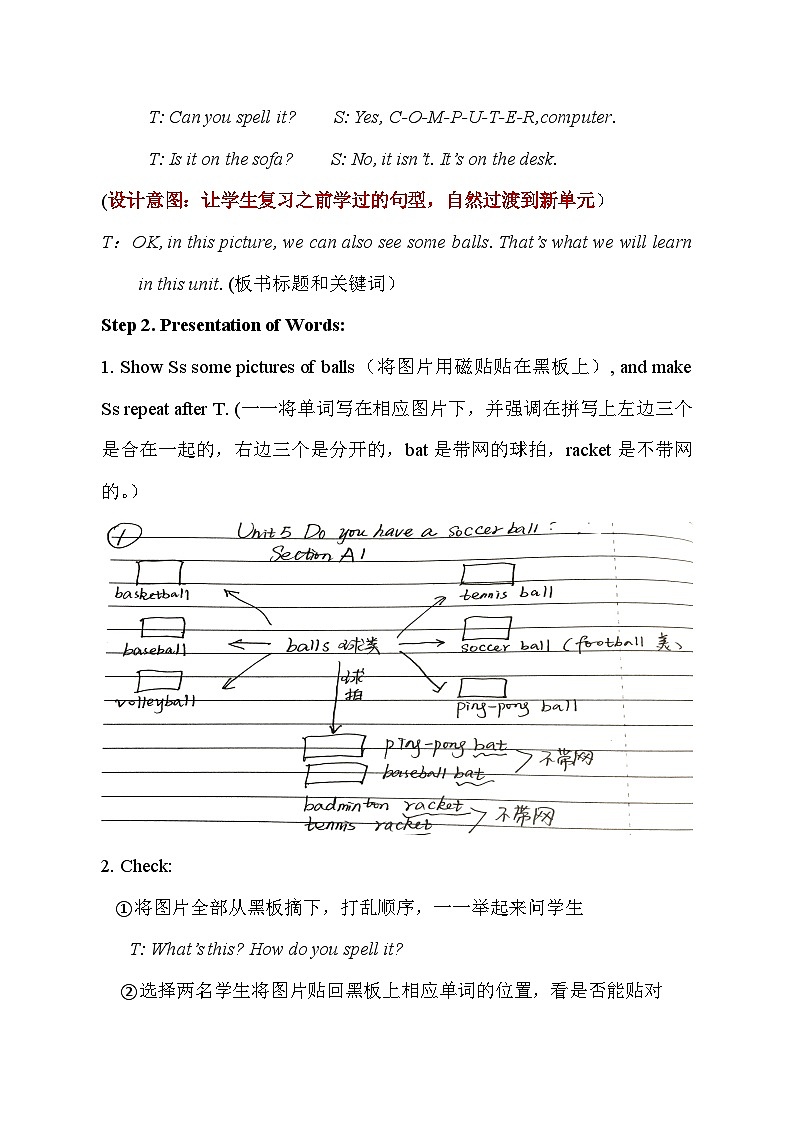 T: Can you spell it? S: Yes, C-O-M-P-U-T-E-R,computer.
T: Is it on the sofa? S: No, it isn't. It's on the desk.
(设计意图：让学生复习之前学过的句型，自然过渡到新单元）
T：OK, in this picture, we can also see some balls. That's what we will learn
in this unit. (板书标题和关键词）
Step 2. Presentation of Words:
1. Show Ss some pictures of balls（将图片用磁贴贴在黑板上）, and make
Ss repeat after T. (一一将单词写在相应图片下，并强调在拼写上左边三个
是合在一起的，右边三个是分开的，bat 是带网的球拍，racket 是不带网
的。）
① Unit 5 Do you have a soccer ball?
Section A1
basketball tennis ball
baseball balls 球类 soccer ball (football 美)
volleyball 球拍 ping-pong ball
ping-pong bat
baseball bat 不带网
badminton racket
tennis racket 不带网
2. Check:
①将图片全部从黑板摘下，打乱顺序，一一举起来问学生
T: What's this? How do you spell it?
②选择两名学生将图片贴回黑板上相应单词的位置，看是否能贴对